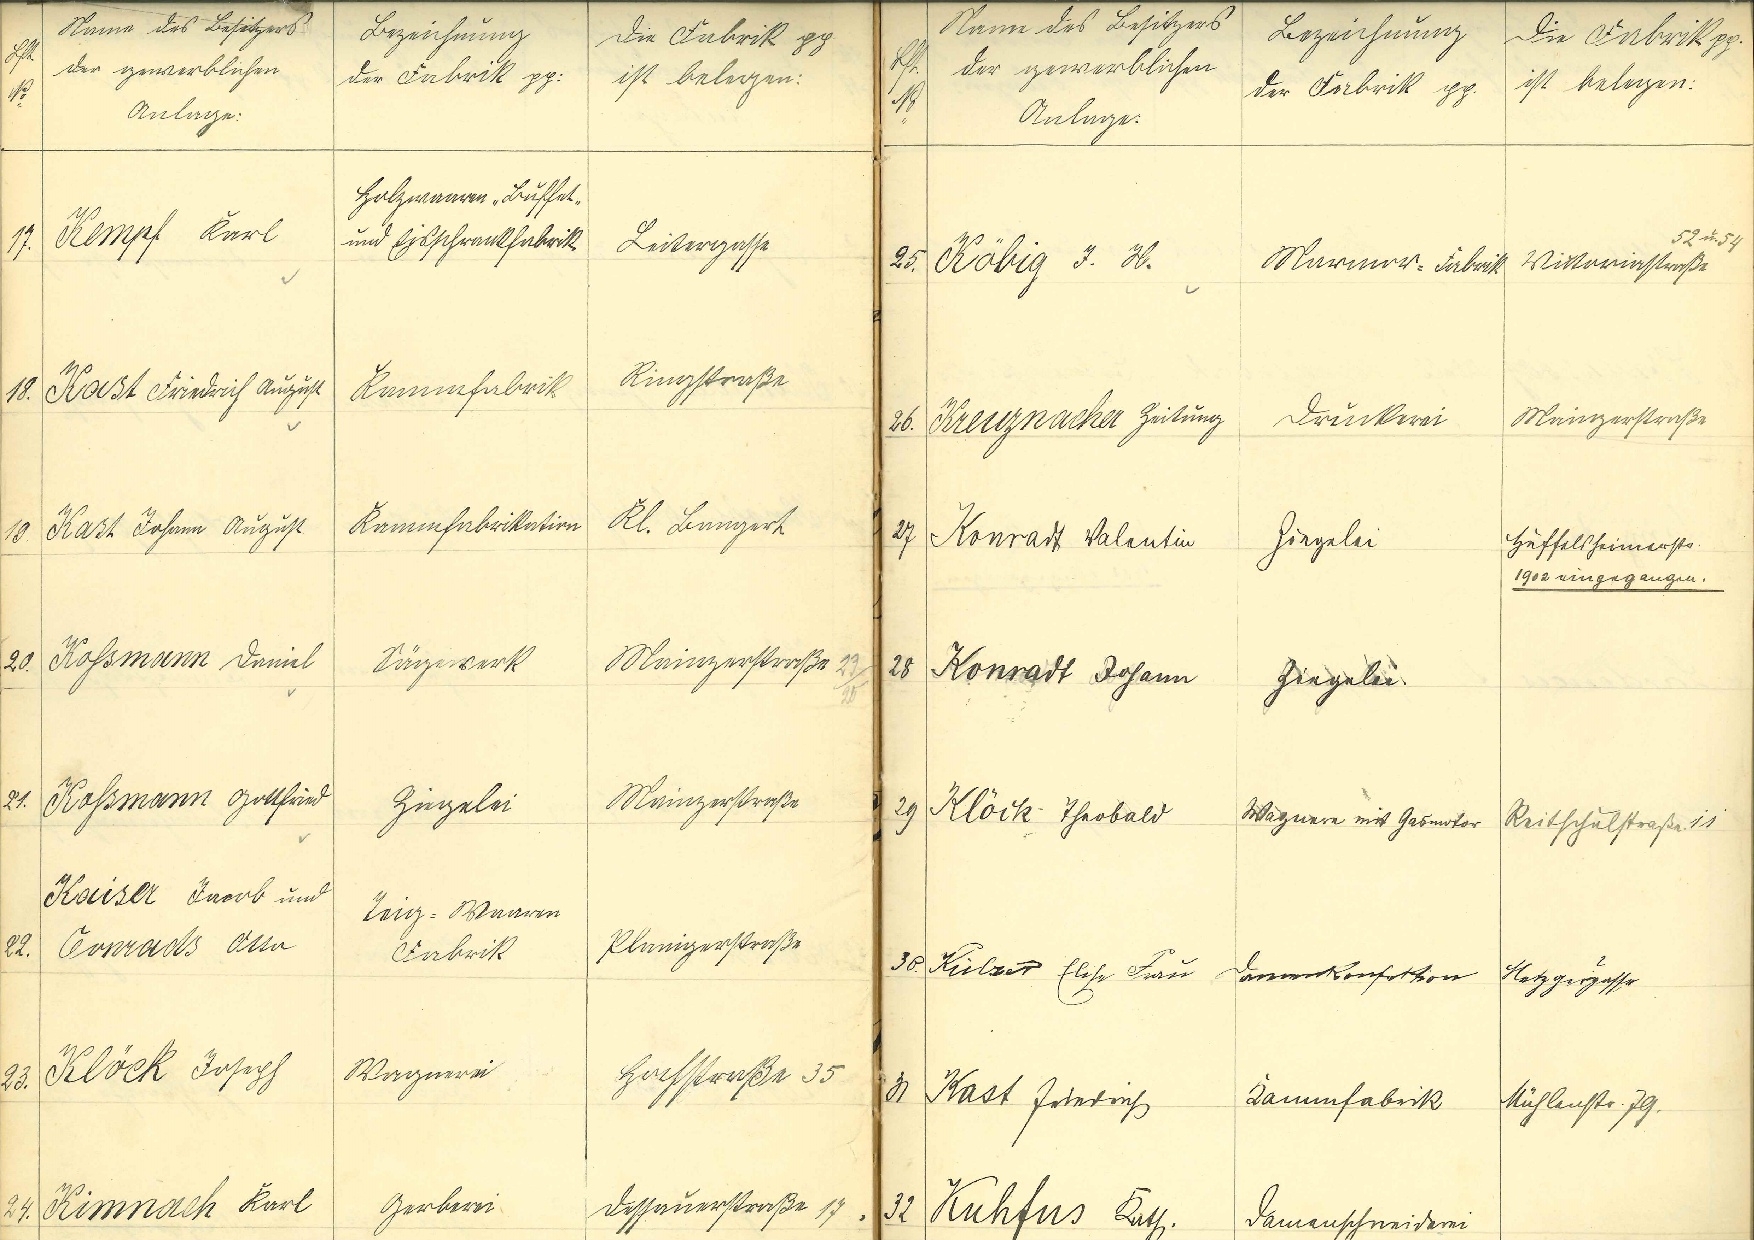 Lfd.
No
Name des Besitzers
der gewerblichen
Anlage:
Bezeichnung
der Fabrik pp:
Die Fabrik pp
ist belegen:
17. Kempf Karl
Holzwaaren-, Buffet-
und Eisschrankfabrik
Leitergasse
18. Kast Friedrich August
Kammfabrik
Ringstraße
19. Kast Johann August
Kammfabrikation
Kl. Bangert
20. Kossmann Daniel
Sägewerk
Mainzerstraße 23/
25
21. Kossmann Gottfried
Ziegelei
Mainzerstraße
Kaiser Jacob und
22. Conrads Otto
Teig-Waaren
Fabrik
Planigerstraße
23. Klöck Joseph
Wagnerei
Hochstraße 35
24. Kimnach Karl
Gerberei
Dessauerstraße 17.
Lfd.
No
Name des Besitzers
der gewerblichen
Anlage:
Bezeichnung
der Fabrik pp.
Die Fabrik pp.
ist belegen:
52 u. 54
25. Köbig J. H.
Marmor-Fabrik
Viktoriastraße
26. Kreuznacher Zeitung
Druckerei
Mainzerstraße
27 Konradt Valentin
Ziegelei
Hüffelsheimerstr.
1902 eingegangen.
28 Konradt Johann
Ziegelei.
29 Klöck Theobald
Wagnere mit Gasmotor
Reitschulstraße 11
30. Elise Frau
Damenkonfektion
Metzgergasse
31 Kast Friedrich
Kammfabrik
Mühlenstr. 79.
32 Kuhfus Kath.
Damenschneiderei